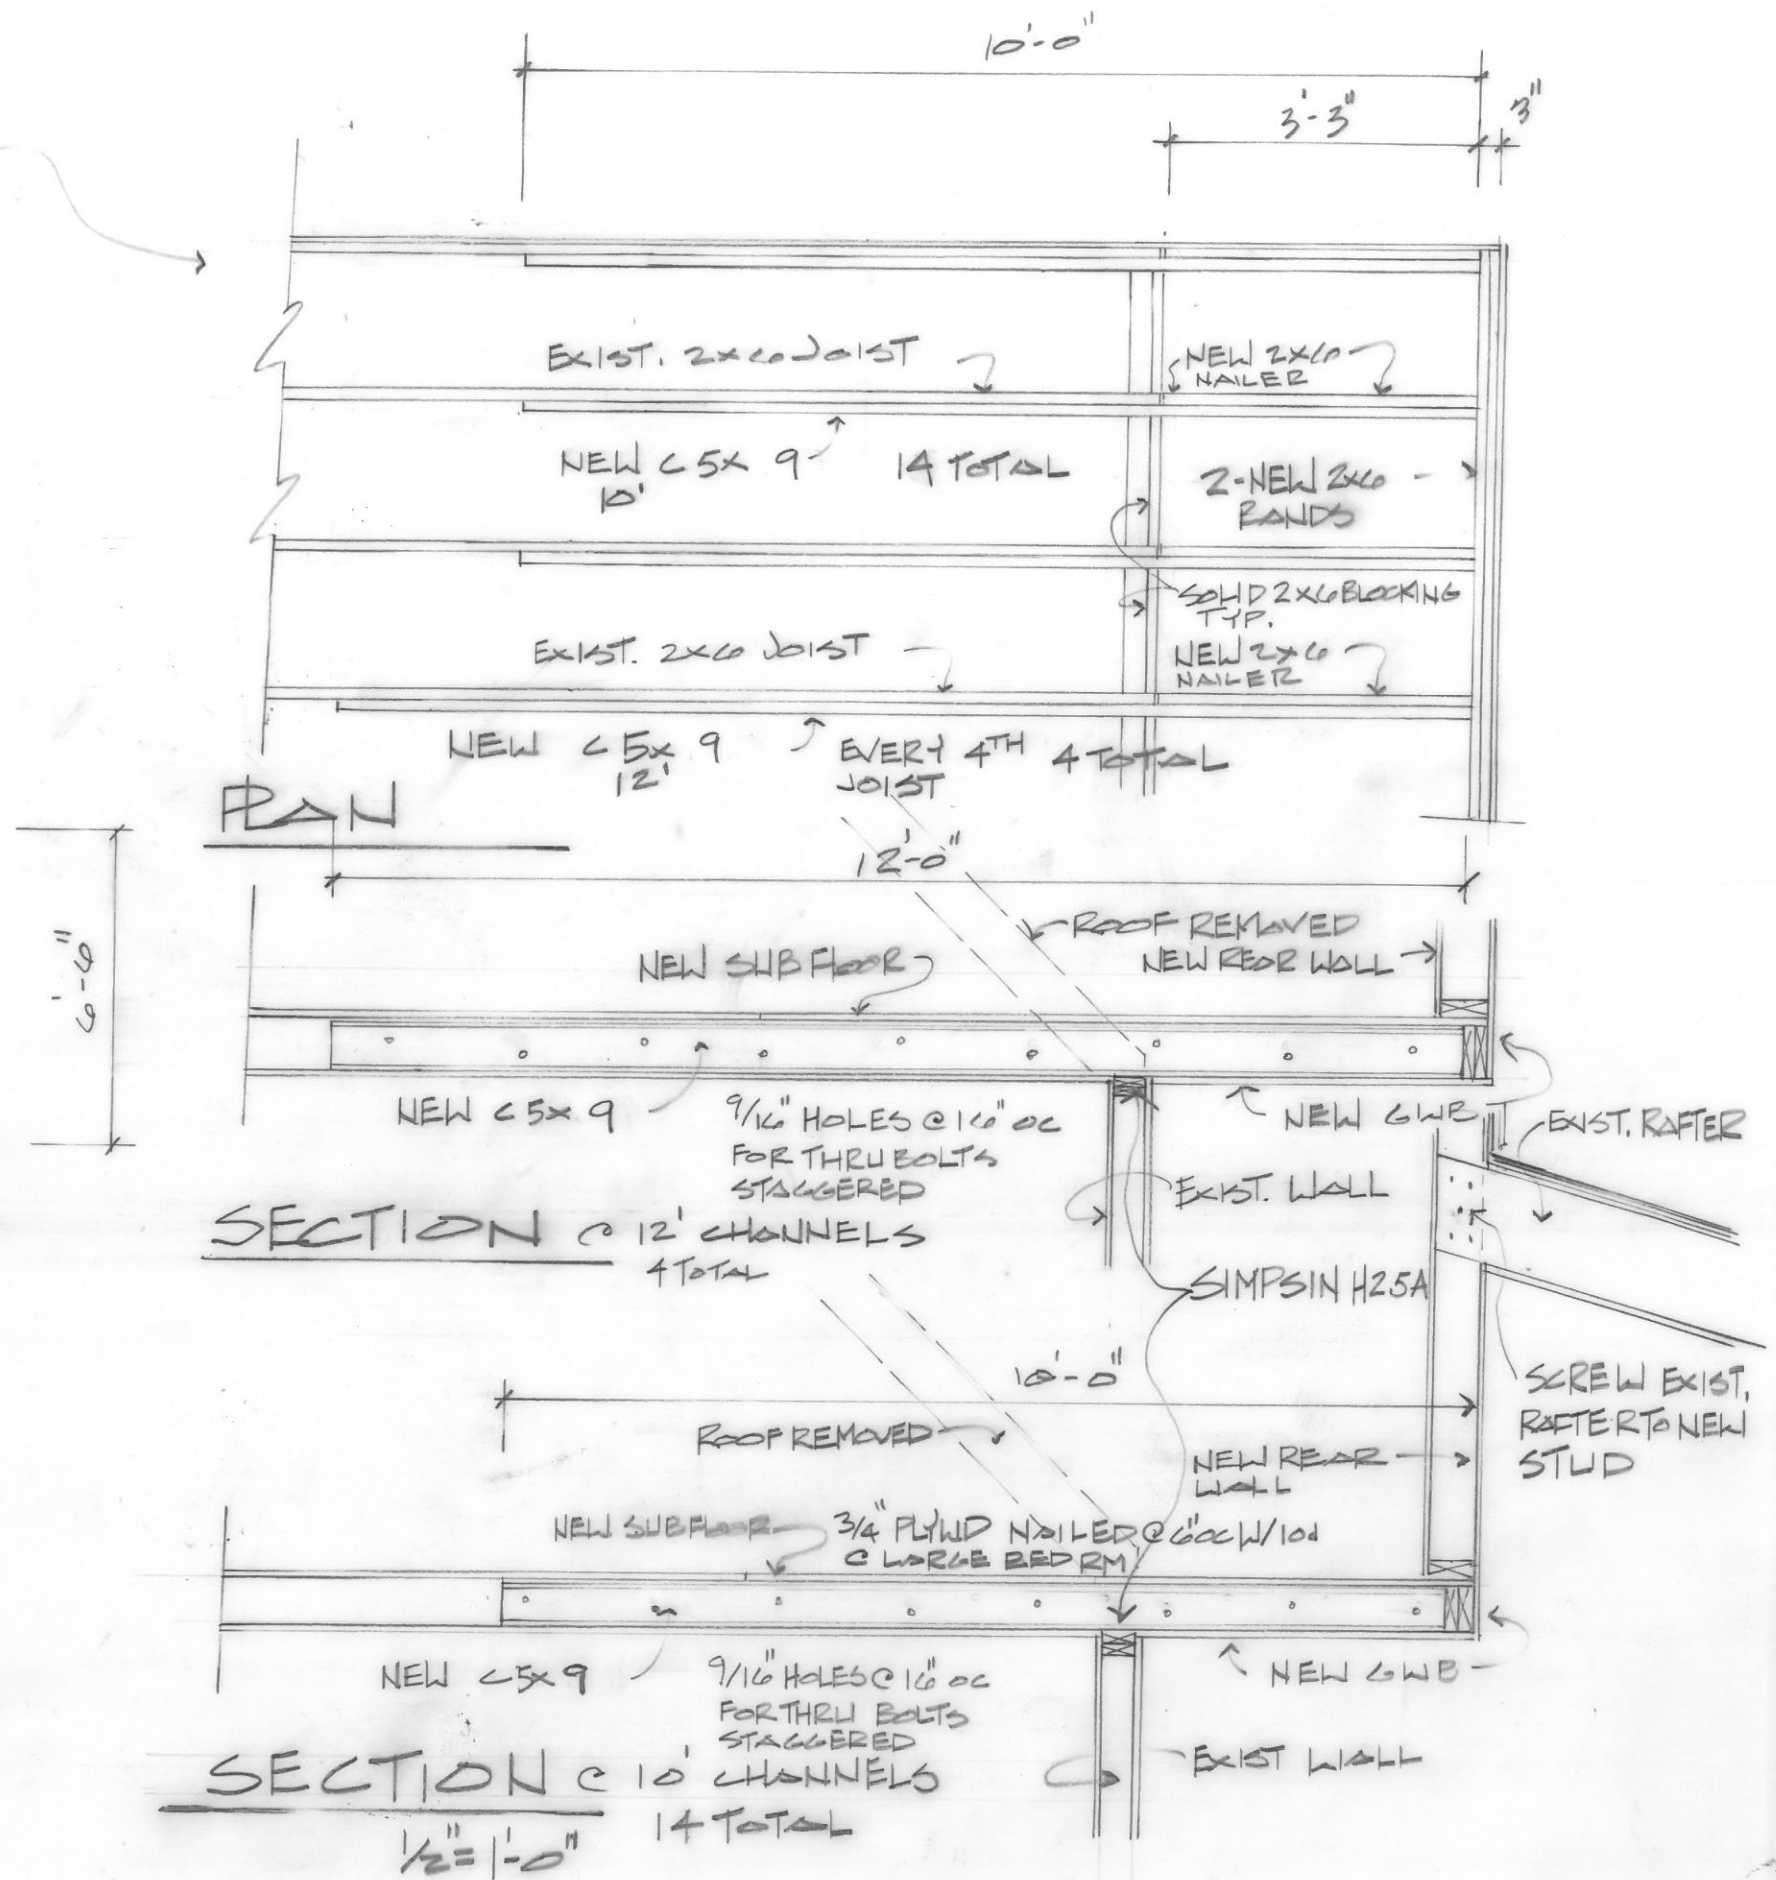 10'-0"
3'-3"
3"
EXIST. 2x6 JOIST
NEW 2x6
NAILER
NEW C 5x 9
10'
14 TOTAL
2-NEW 2x6
BANDS
SOLID 2x6 BLOCKING
TYP.
EXIST. 2x6 JOIST
NEW 2x6
NAILER
NEW C 5x 9
12'
EVERY 4TH
JOIST
4 TOTAL
PLAN
12'-0"
6'-6"
ROOF REMOVED
NEW SUBFLOOR
NEW REAR WALL
NEW C 5x 9
9/16" HOLES @ 16" OC
FOR THRU BOLTS
STAGGERED
NEW GWB
EXIST. RAFTER
EXIST. WALL
SECTION @ 12' CHANNELS
4 TOTAL
SIMPSIN H25A
10'-0"
SCREW EXIST.
RAFTER TO NEW
STUD
ROOF REMOVED
NEW REAR
WALL
NEW SUBFLOOR
3/4" PLYWD NAILED @ 6"OC W/10d
@ LARGE BED RM
NEW C5x9
9/16" HOLES @ 16" OC
FOR THRU BOLTS
STAGGERED
NEW GWB
EXIST WALL
SECTION @ 10' CHANNELS
14 TOTAL
1/2"= 1'-0"